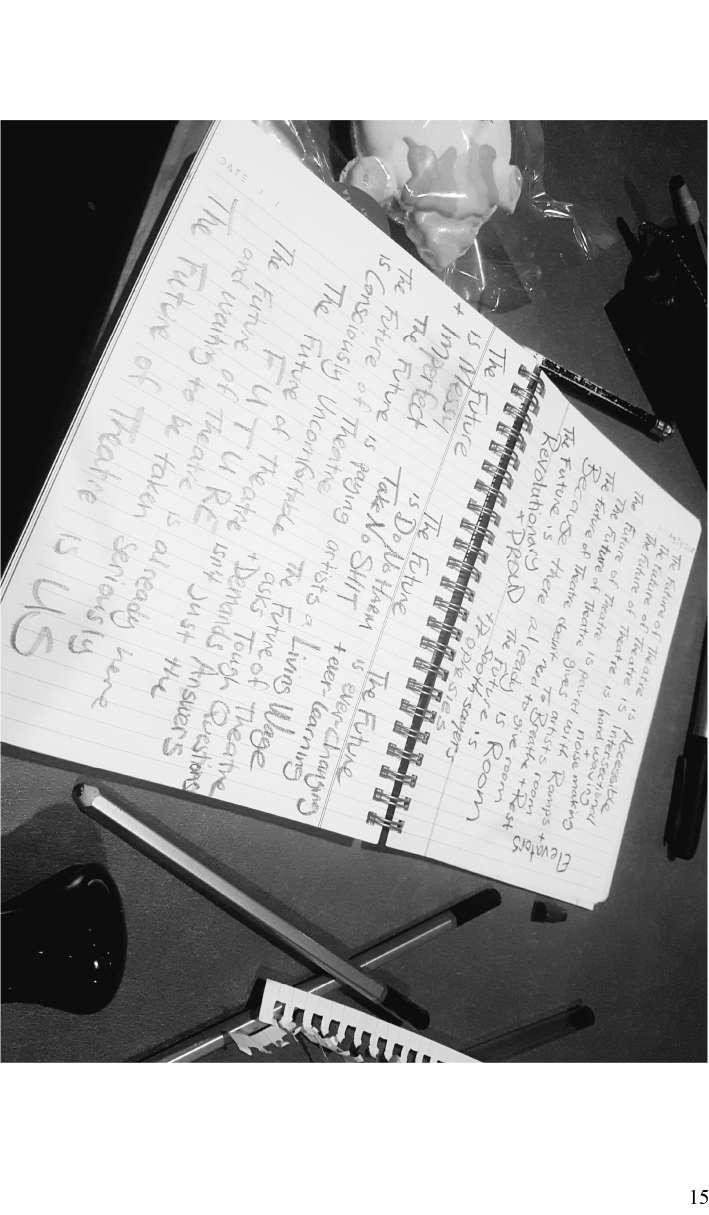 The Future of Theatre is Accessible
The Future of Theatre is Intersectional
The Future of Theatre is hand waving
The Future of Theatre is noise making
The Future of Theatre is paved with Ramps + Elevators
The Future of Theatre gives artists room
Because Theatre doesn't need to Breathe + Rest
The Future is there already to give room
Revolutionary The Future is Room
+ PROUD
+ Soothsayers
+ Prophesies
The Future
is Messy
+ Imperfect
The Future
is Do No Harm
Take No SHIT
The Future
is everchanging
+ ever learning
The Future
is Consciously Uncomfortable
The Future of Theatre
is paying artists a Living Wage
The Future of Theatre
asks Tough Questions
+ Demands Answers
The Future of Theatre
isn't Just the
FUTURE
The Future of Theatre is already here
and waiting to be taken seriously
The Future of Theatre is US
DATE
15